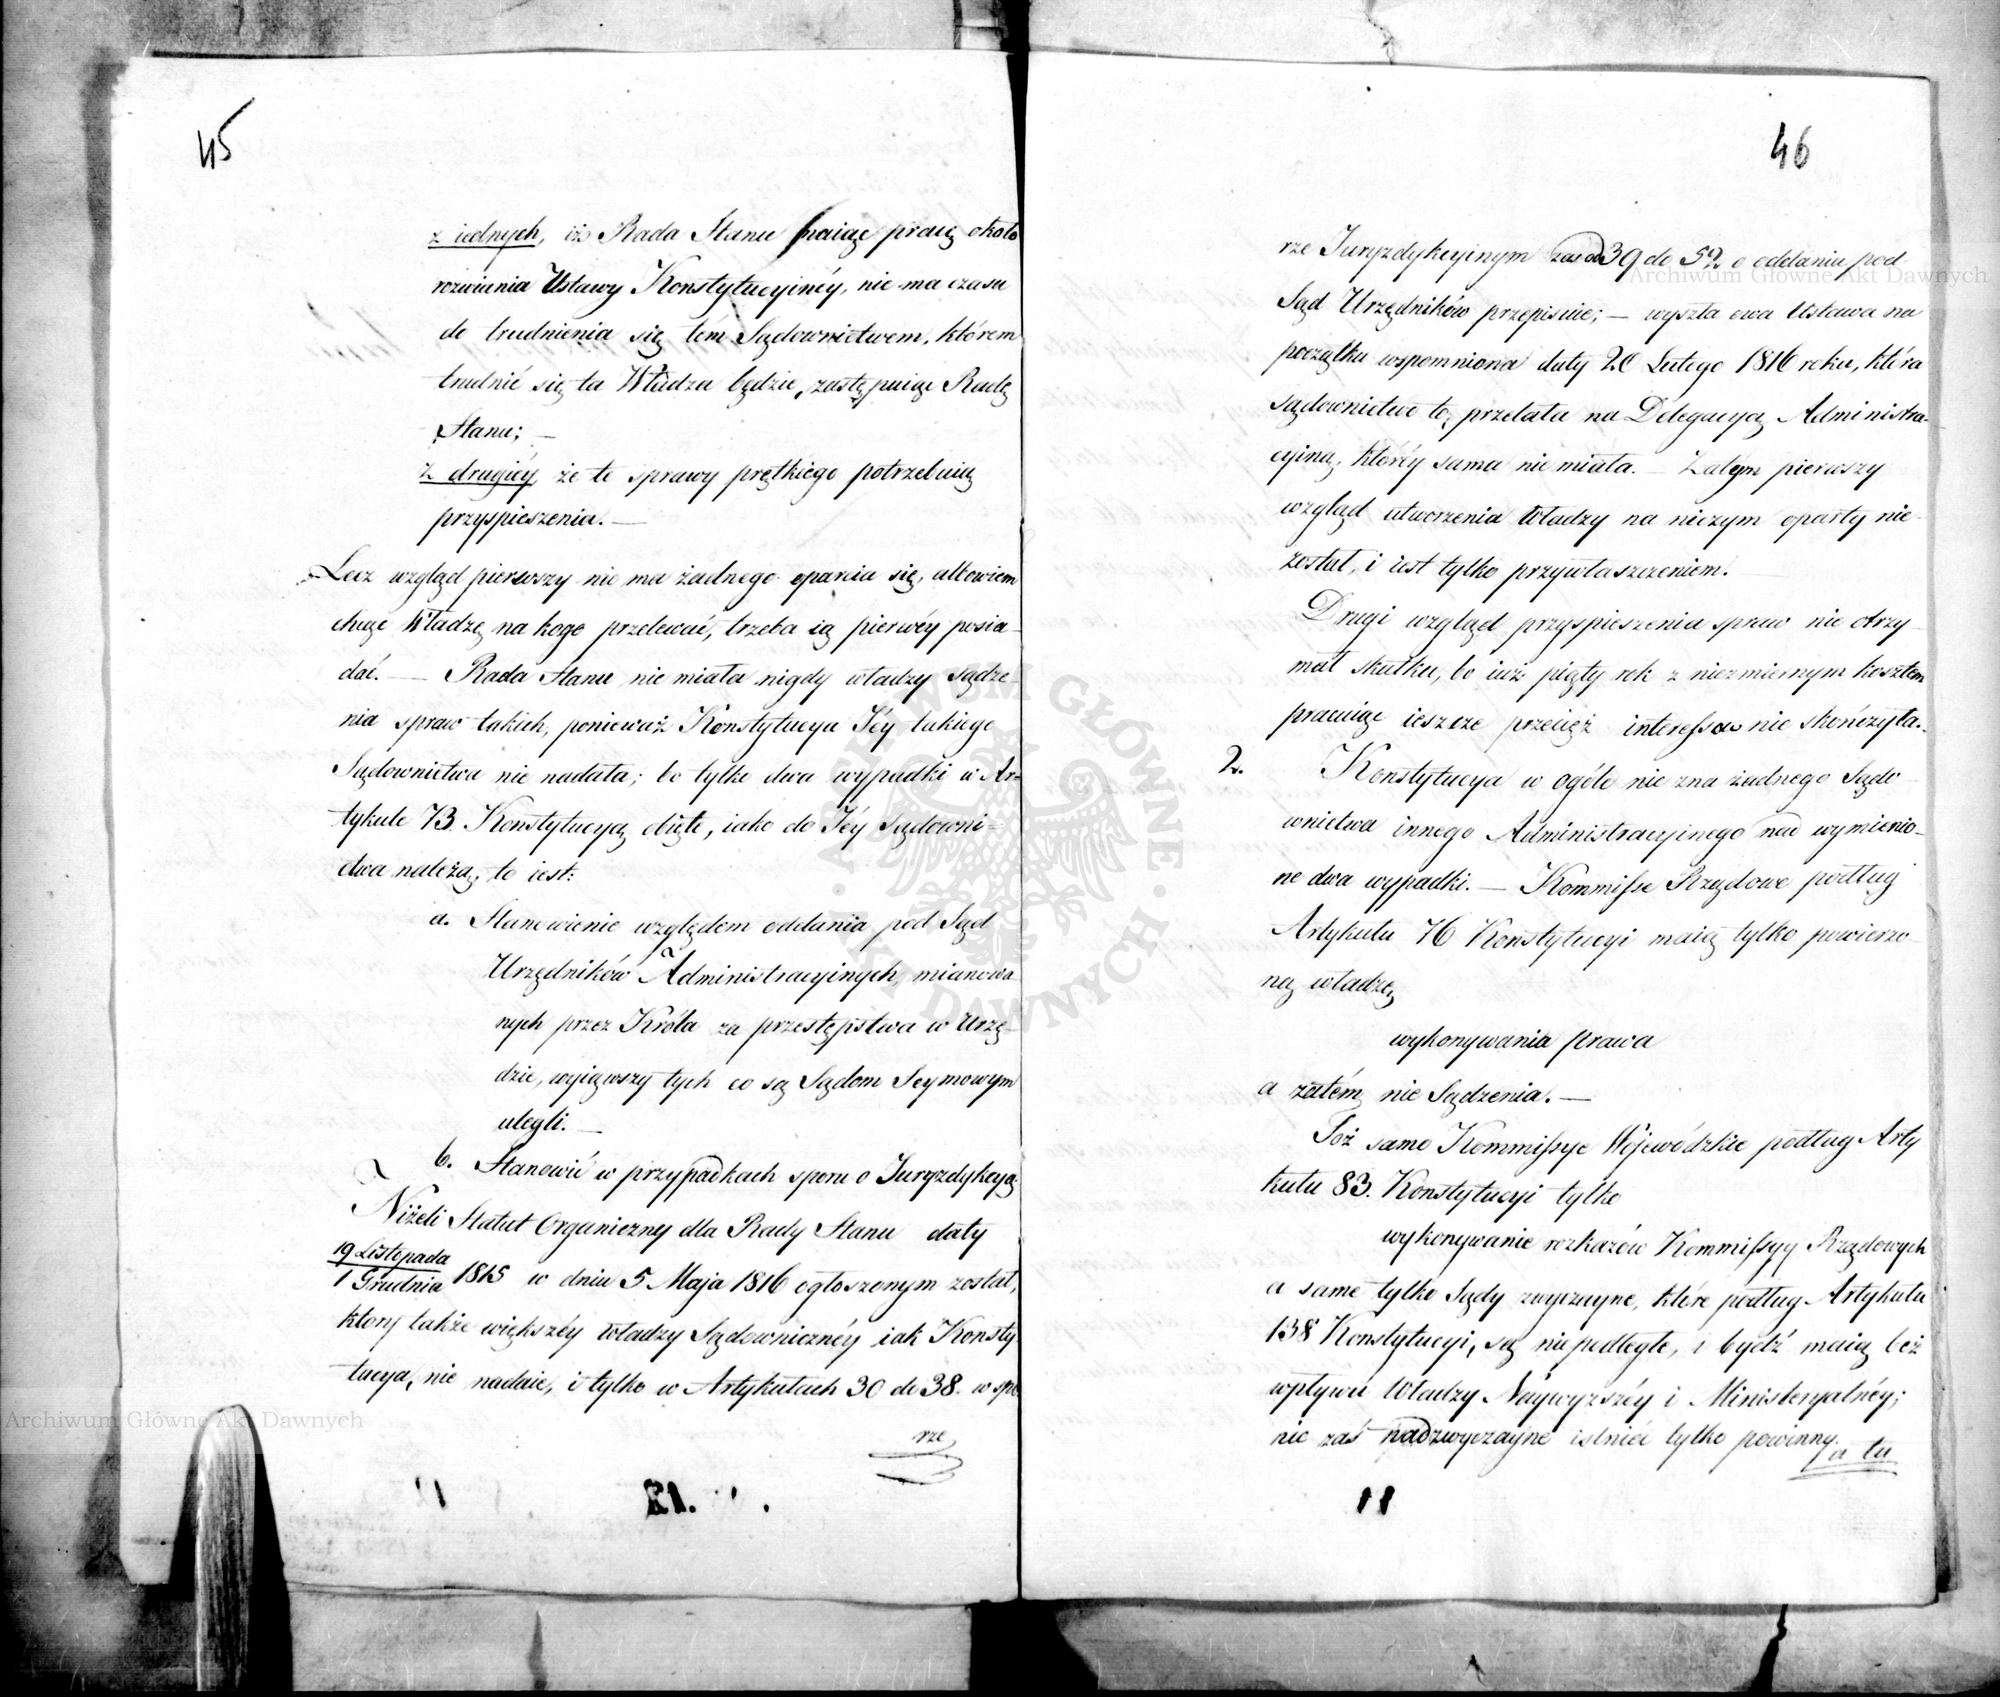 45
z iednych, iż Rada Stanu maiąc pracę około
rozwinienia Ustawy Konstytucyinéy, nie ma czasu
do trudnienia się tém Sądownictwem, którém
trudnić się ta Władza będzie, zastępuiąc Radę
Stanu; —
z drugiéy że te sprawy prętkiego potrzebuią
przyspieszenia. —
Lecz wzgląd pierwszy nie ma żadnego oparcia się, albowiem
chcąc Władzę na kogo przelewać, trzeba ią pierwéy posia-
dać. — Rada Stanu nie miała nigdy władzy Sądze-
nia spraw takich, ponieważ Konstytucya Jéy takiego
Sądownictwa nie nadała; bo tylko dwa wypadki w Ar-
tykule 73 Konstytucyą obięte, iako do Jéy Sądowni-
ctwa należą, to iest:
a. Stanowienie względem oddania pod Sąd
Urzędników Administracyinych, mianowa
nych przez Króla za przestępstwa w Urzę-
dzie, wyiąwszy tych co są Sądom Seymowym
ulegli. —
b. Stanowić w przypadkach sporu o Juryzdykcyą.
Niżeli Statut Organiczny dla Rady Stanu daty
19 Listopada
1 Grudnia 1815 w dniu 5 Maja 1816 ogłoszonym został,
który także większéy władzy Sądowniczéy iak Konsty
tucya, nie nadaie, i tylko w Artykułach 30 do 38. w spo
rze
21.
46
rze Juryzdykcyinym zaś od 39 do 59 o oddaniu pod
Sąd Urzędników przepisuie; — wyszła owa Ustawa na
początku wspomniona daty 20 Lutego 1816 roku, która
sądownictwo to, przelała na Delegacyą Administra-
cyiną, któréy sama nie miała. — Zatym pierwszy
wzgląd utworzenia Władzy na niczym oparty nie-
został, i iest tylko przywłaszczeniem. —
Drugi wzgląd przyspieszenia spraw nie otrzy-
mał skutku, bo iuż piąty rok z niezmiernym kosztem
pracuiąc ieszcze przecięż interessów nie skończyła.
2. Konstytucya w ogóle nie zna żadnego Sądo-
wnictwa innego Administracyinego nad wymienio-
ne dwa wypadki. — Kommisse Rządowe podług
Artykułu 76 Konstytucyi maią tylko powierzo-
ną władzę
wykonywania prawa
a zatém nie Sądzenia. —
Toż samo Kommissye Wojewódzkie podług Arty
kułu 83. Konstytucyi tylko
wykonywanie rozkazów Kommissyy Rządowych
a same tylko Sądy zwyczayne, które podług Artykułu
138 Konstytucyi, są niepodległe, i bydź maią bez
wpływu Władzy Naywyższéy i Ministeryalnéy;
nie zaś nadzwyczayne istnieć tylko powinny.
a tu
11
Archiwum Główne Akt Dawnych
Archiwum Główne Akt Dawnych
ARCHIWUM GŁÓWNE · AKT DAWNYCH ·